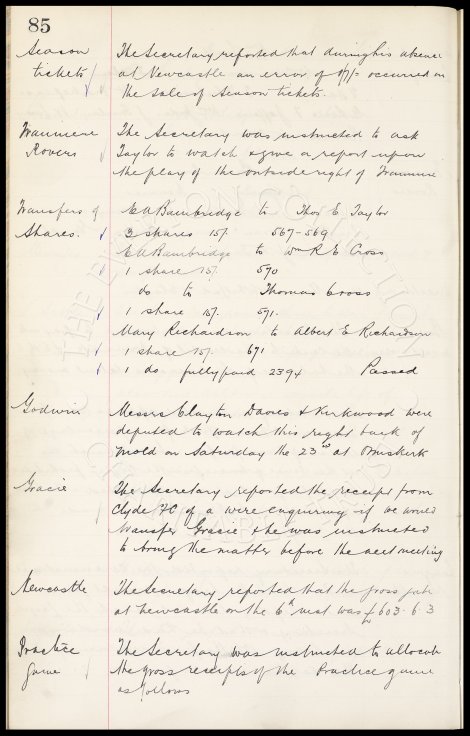 85
Season tickets
The Secretary reported that during his absence
at Newcastle an error of occurred in
the sale of Season tickets.
Tranmere Rovers
The Secretary was instructed to ask
Taylor to watch & give a report upon
the play of the outside right of Tranmere
Transfers of Shares.
E A Bainbridge to Thos E Taylor
3 shares 15/. 567-569
E A Bainbridge to Wm R E Cross
1 share 15/. 570
do to Thomas Cross
1 share 15/. 571.
Mary Richardson to Albert E Richardson
1 share 15/. 671
1 do fully paid 2394 Passed
Godwin
Messrs Clayton Davies & Kirkwood were
deputed to watch this right back of
Mold on Saturday the 23rd at Ormskirk
Gracie
The Secretary reported the receipt from
Clyde FC of a wire enquiring if we would
transfer Gracie & he was instructed
to bring the matter before the next meeting
Newcastle
The Secretary reported that the gross gate
at Newcastle on the 6th inst was £603-6-3
Practice Game
The Secretary was instructed to allocate
the gross receipts of the Practice game
as follows